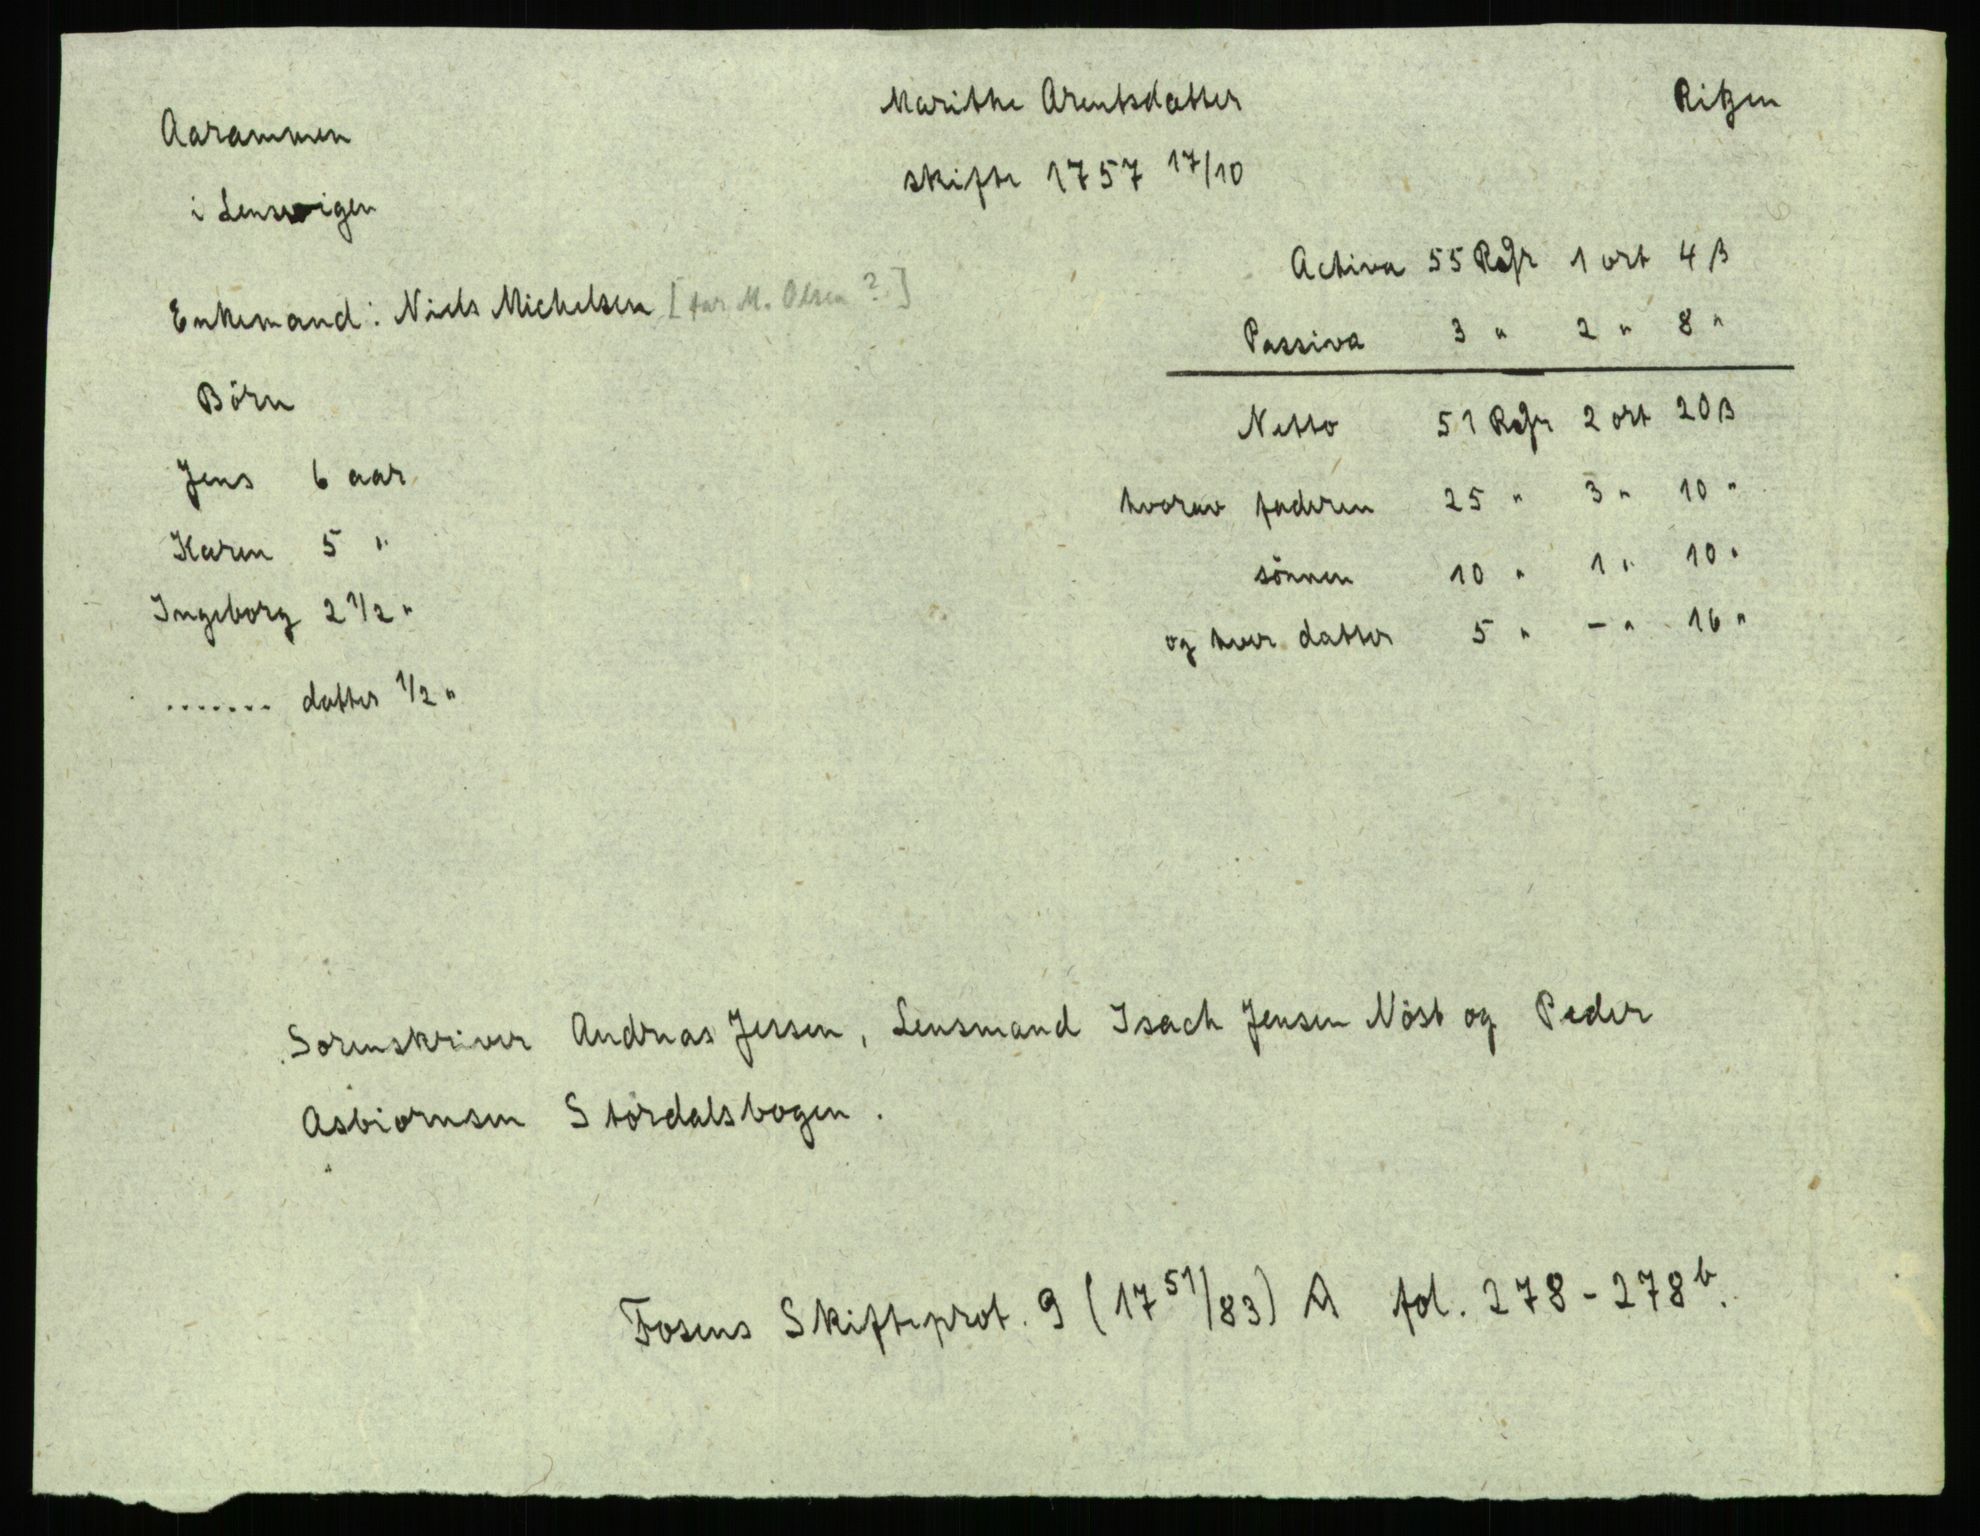 Marithe Arentsdatter
Ritzen
Aarammen
i Lensvigen
skifte 1757 17/10
Enkemand: Niels Michelsen [far M. Olsen?]
Börn
Jens 6 aar
Karen 5 "
Ingeborg 2 1/2 "
....... datter 1/2 "
Activa 55 Rdlr 1 ort 4 β
Passiva 3 " 2 " 8 "
Netto 51 Rdlr 2 ort 20 β
hvorav faderen 25 " 3 " 10 "
sönnen 10 " 1 " 10 "
og hver datter 5 " - " 16 "
Sorenskriver Andreas Jessen, Lensmand Isach Jensen Nöst og Peder
Asbiornsen Stordalsbogen.
Fosens Skifteprot. 9 (17 51/83) A fol. 278-278 b.